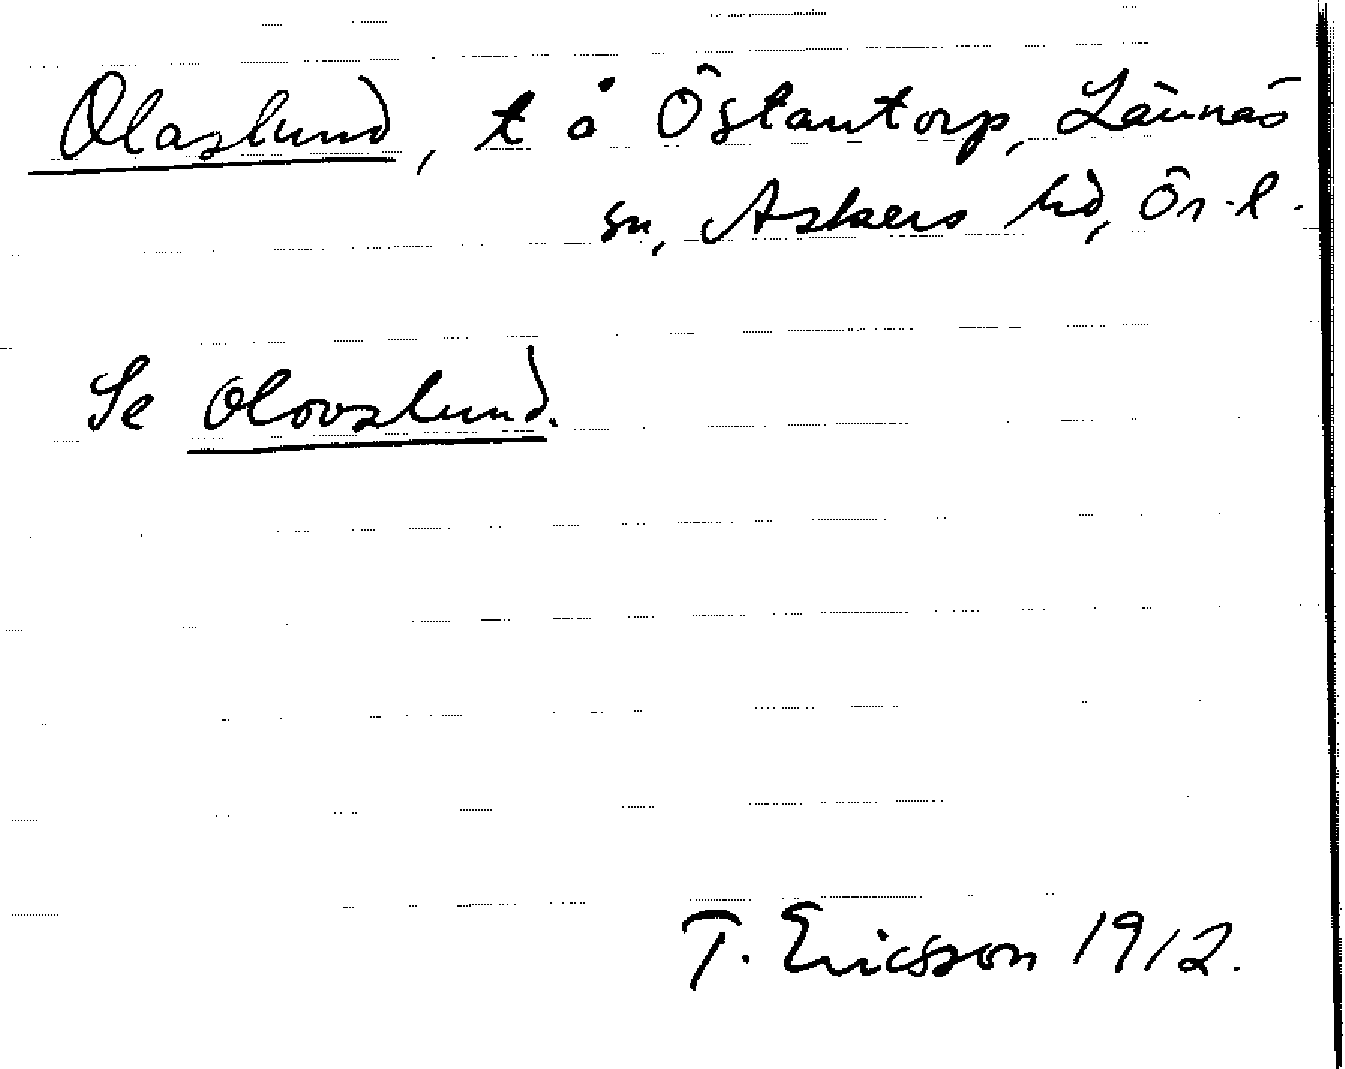 Olaslund, t å Östantorp, Lännäs
sn, Askers hd, Ör. l.
Se Olovslund.
T. Ericsson 1912.